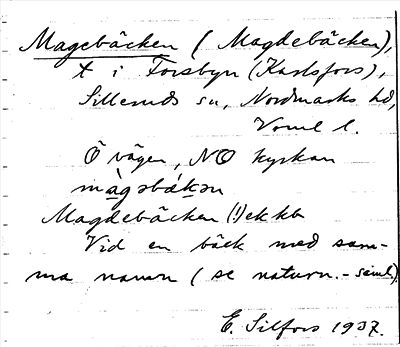 Magebäcken (Magdebäcken),
t i Forsbyn (Karlsfors),
Silleruds sn, Nordmarks hd,
Vrml l.
Ö vägen, NO kyrkan
màgəbǽkən
Magdebäcken (!) ekkb
Vid en bäck med sam-
ma namn (se naturn.-saml.).
E. Silfors 1937.